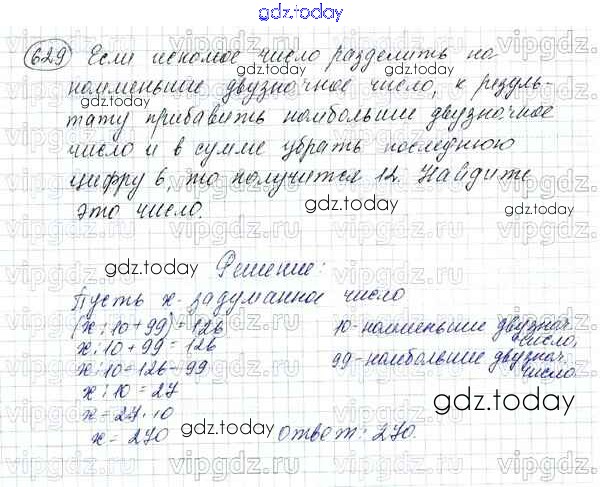 gdz.today
629 Если искомое число разделить на
наименьшее двузначное число, к резуль-
тату прибавить наибольшее двузначное
число и в сумме убрать последнюю
цифру 6, то получится 12. Найдите
это число.
Решение:
Пусть х - задуманное число
(х : 10 + 99) = 126
х : 10 + 99 = 126
х : 10 = 126 - 99
х : 10 = 27
х = 27 · 10
х = 270
10 - наименьшее двузнач.
число,
99 - наибольшее двузнач.
число.
Ответ: 270.
gdz.today
gdz.today
gdz.today
gdz.today
gdz.today
gdz.today
gdz.today
gdz.today
gdz.today